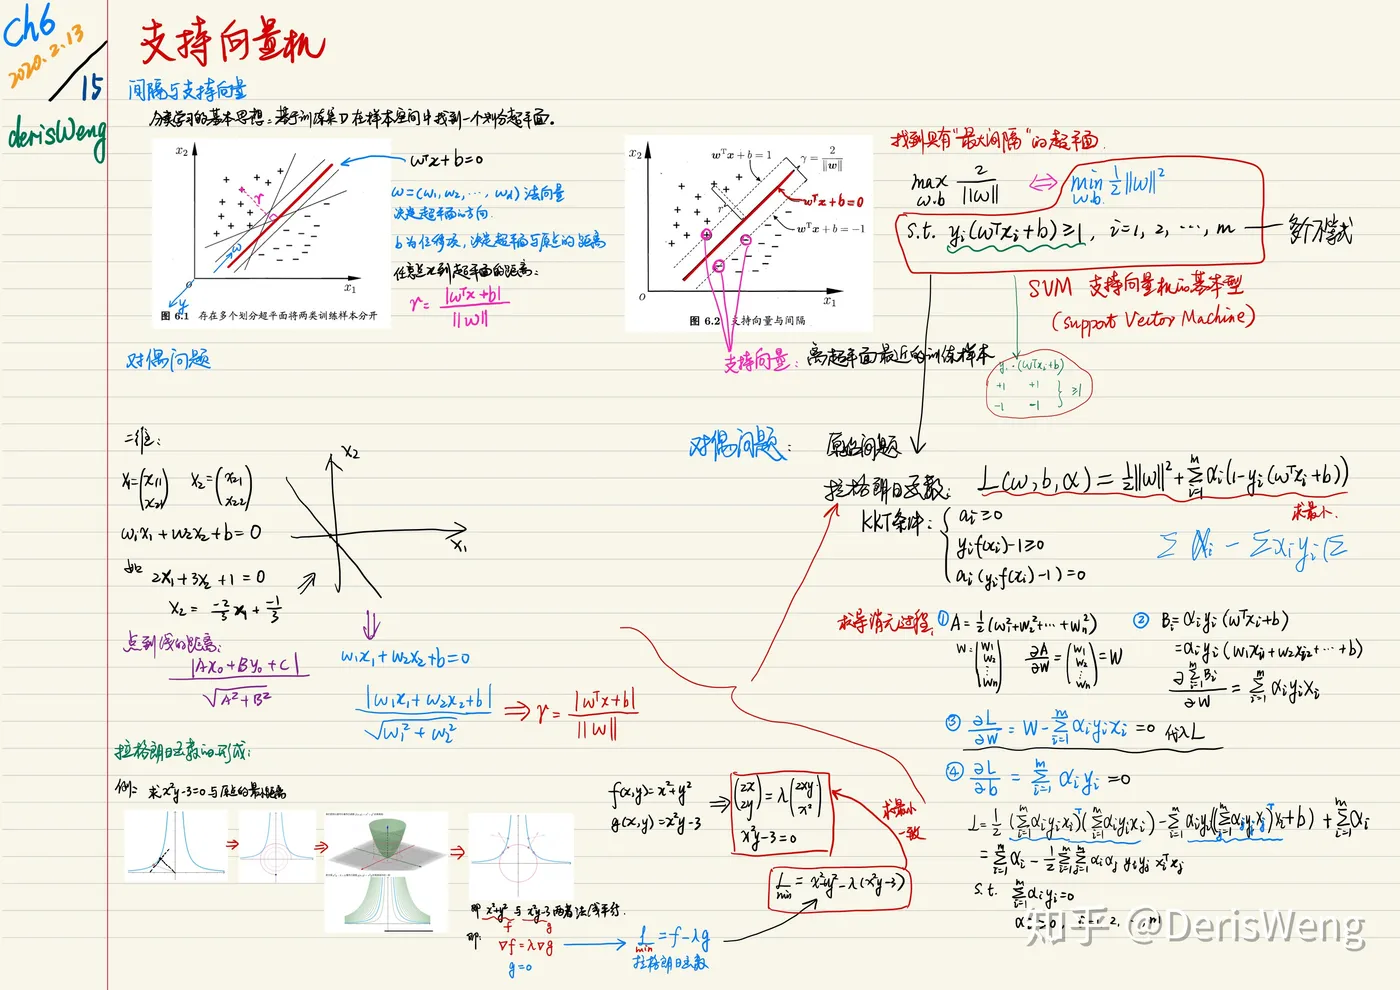 Ch6
2020.2.13
/15
derisWeng
支持向量机
间隔与支持向量
分类学习的基本思想:基于训练集D在样本空间中找到一个划分超平面。
x₂
wᵀx+b=0
w=(w₁,w₂,…,wd)法向量
决定超平面的方向.
b为位移项,决定超平面与原点的距离
任意点x到超平面的距离:
r=|wᵀx+b|/||w||
r
w
y
0
x₁
图 6.1 存在多个划分超平面将两类训练样本分开
x₂
wᵀx+b=1
γ=2/||w||
wᵀx+b=0
wᵀx+b=-1
0
x₁
图 6.2 支持向量与间隔
支持向量:离超平面最近的训练样本
找到具有"最大间隔"的超平面.
max w.b 2/||w|| ⇔ min w.b ½||w||²
s.t. yi(wᵀxi+b)≥1, i=1,2,…,m
SVM 支持向量机的基本型
(support Vector Machine)
yi·(wᵀxi+b)
+1 +1
-1 -1
≥1
对偶问题
二维:
x₂=(x₂₁ x₂₂)
w₁x₁+w₂x₂+b=0
如
2x₁+3x₂+1=0
x₂=-2/3x₁+-1/3
x₂
x₁
点到线的距离:
|Ax₀+By₀+C|/√A²+B²
w₁x₁+w₂x₂+b=0
|w₁x₁+w₂x₂+b|/√w₁²+w₂² ⇒ r=|wᵀx+b|/||w||
对偶问题:
原始问题
拉格朗日函数:
L(w,b,α)=½||w||²+∑ᵢ₌₁ᵐαi(1-yi(wᵀxi+b))
求最小.
KKT条件:
ai≥0
yif(xi)-1≥0
ai(yif(xi)-1)=0
∑αi-∑xiyi(∑
求导消元过程,
① A=½(w₁²+w₂²+…+wn²)
w=(w₁ w₂ ⋮ wn) ∂A/∂w=(w₁ w₂ ⋮ wn)=w
② Bi=αiyi(wᵀxi+b)
=αiyi(w₁xi₁+w₂xi₂+…+b)
∂∑ᵢ₌₁ᵐBi/∂w=∑ᵢ₌₁ᵐαiyixi
③ ∂L/∂w=w-∑ᵢ₌₁ᵐαiyixi=0 代入L
④ ∂L/∂b=∑ᵢ₌₁ᵐαiyi=0
L=½(∑ᵢ₌₁ᵐαiyixi)ᵀ(∑ᵢ₌₁ᵐαiyixi)-∑ᵢ₌₁ᵐαiyi((∑ᵢ₌₁ᵐαjyjxj)ᵀxi+b)+∑ᵢ₌₁ᵐαi
=∑ᵢ₌₁ᵐαi-½∑ᵢ₌₁ᵐ∑ⱼ₌₁ᵐαiαjyiyjxiᵀxj
s.t. ∑ᵢ₌₁ᵐαiyi=0
拉格朗日函数的形成:
例: 求x²y-3=0与原点的最小距离
即 x²+y²与x²y-3两者法线平行.
f g
即:
∇f=λ∇g
g=0
L min=f-λg
拉格朗日函数
f(x,y)=x²+y²
g(x,y)=x²y-3
⇒
(2x 2y)=λ(2xy x²)
x²y-3=0
求最小
一致
L min=x²+y²-λ(x²y-3)
知乎 @DerisWeng